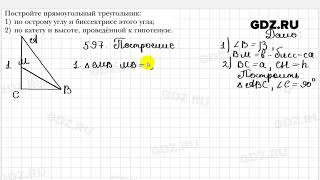 Постройте прямоугольный треугольник:
1) по острому углу и биссектрисе этого угла;
2) по катету и высоте, проведённой к гипотенузе.
GDZ.RU
A
M
1.
C
B
597. Построение
1. △CMB MB=
Дано
1) ∠B=β,
BM=b - бисс-са
2) BC=a, CH=h
Построить
△ABC, ∠C=90°